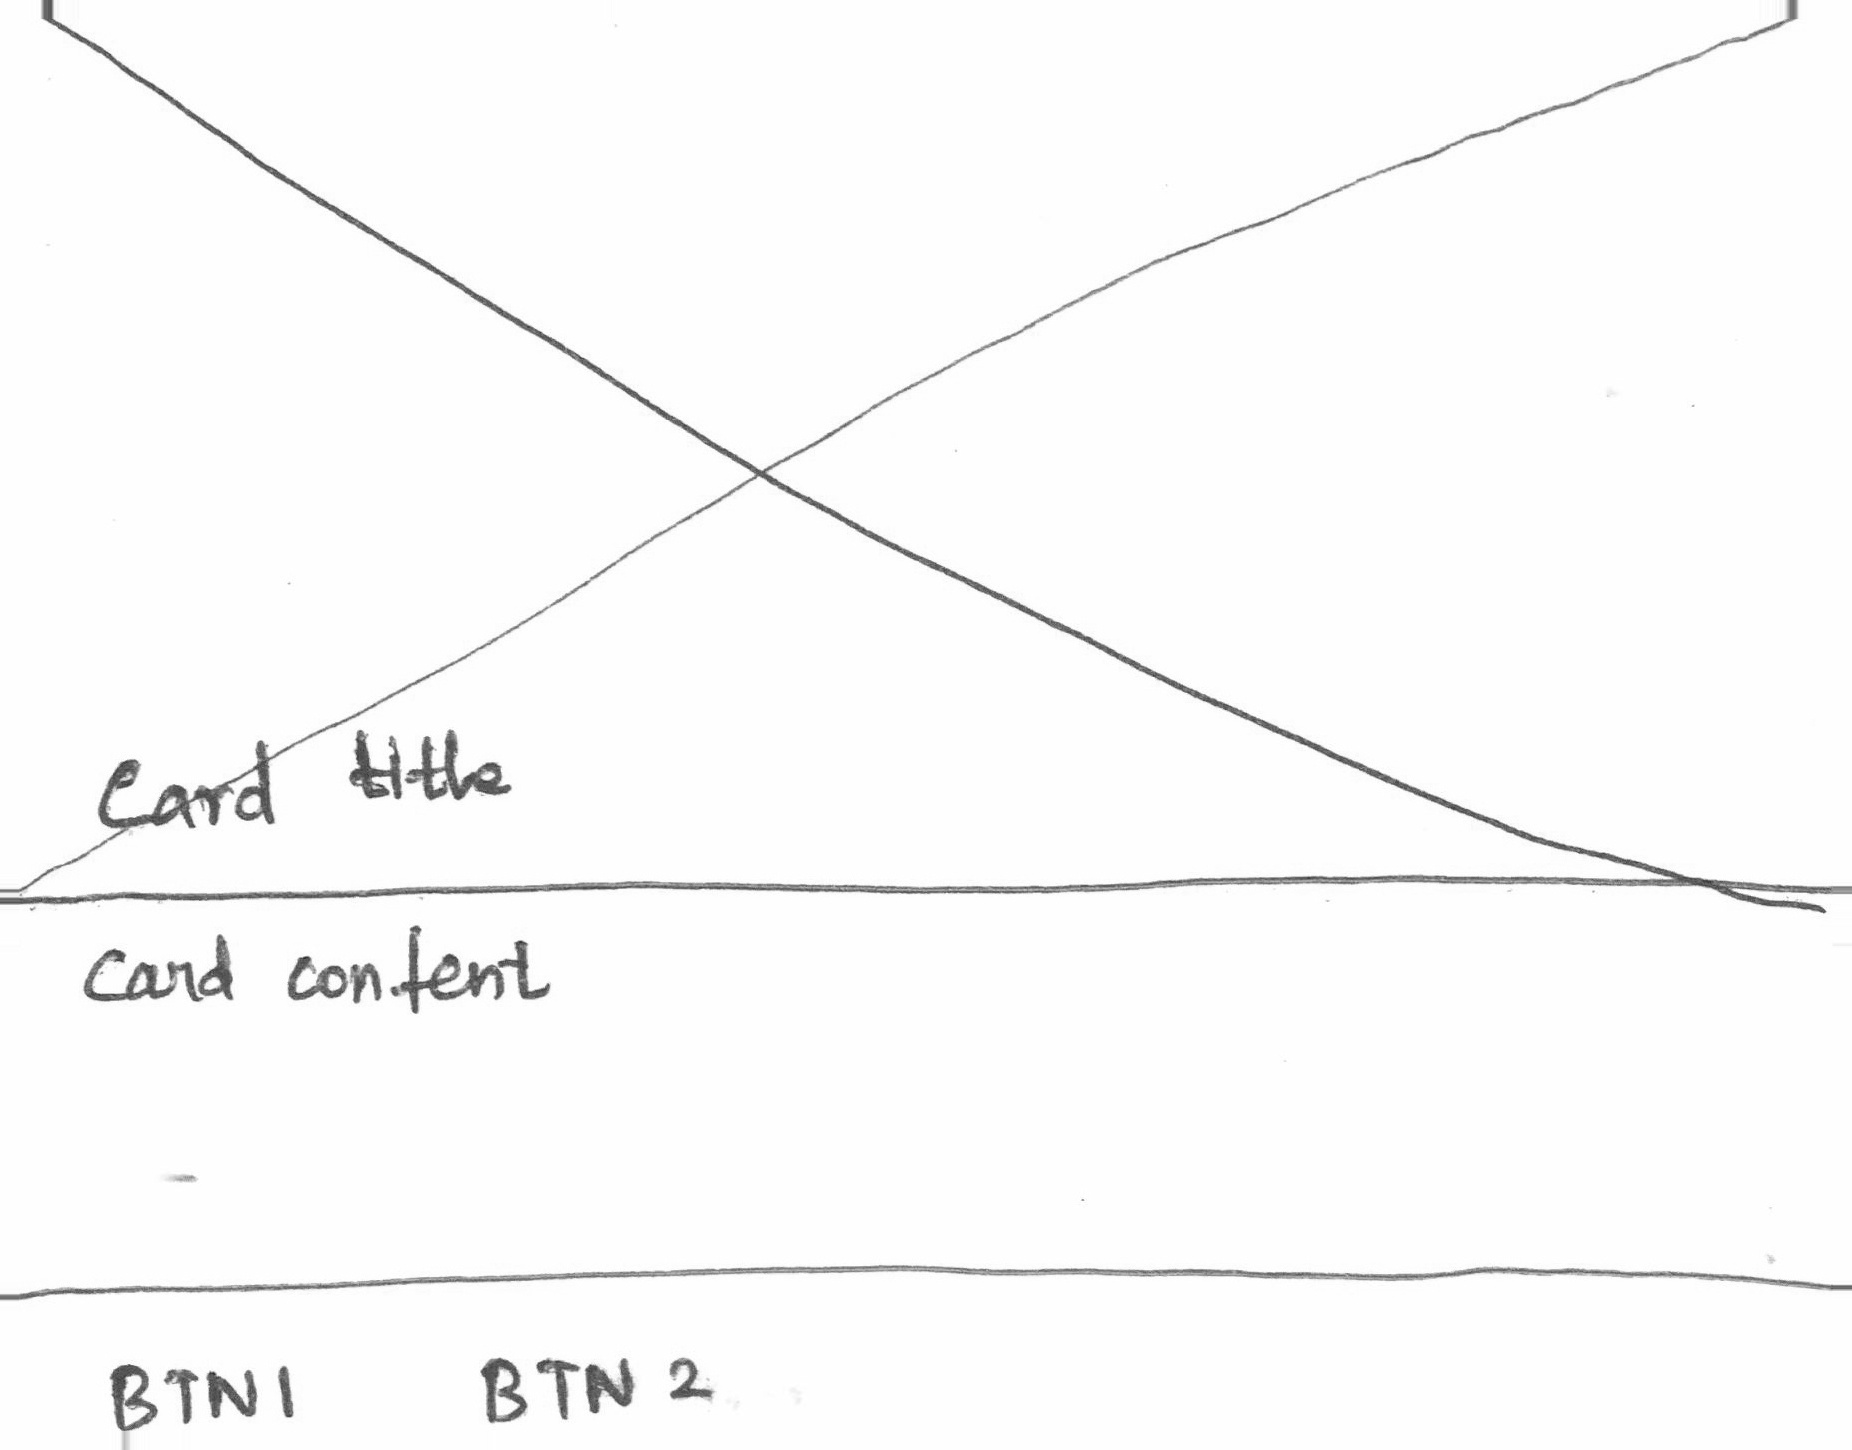 Card title
Card content
BTN1 BTN 2